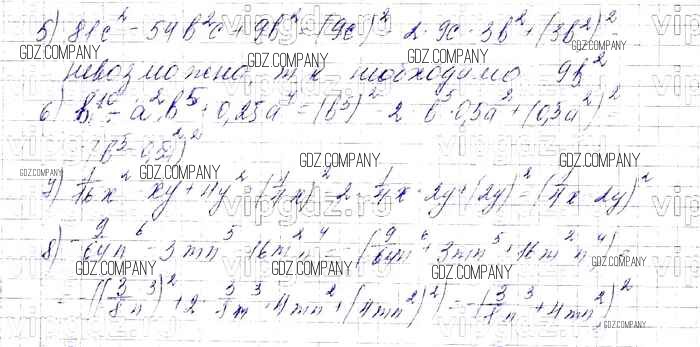 5) 81c² - 54b²c + 9b² = (9c)² - 2·9c·3b² + (3b²)²
невозможно т.к. необходимо 9b²
6) b¹⁰ - a²b⁵ + 0,25a⁴ = (b⁵)² - 2·b⁵·0,5a² + (0,5a²)² =
= (b⁵ - 0,5a²)²
7) 1/16x² - xy + 4y² = (1/4x)² - 2·1/4x·2y + (2y)² = (1/4x - 2y)²
8) -9/64n⁶ - 3mn⁵ - 16m²n⁴ = -(9/64n⁶ + 3mn⁵ + 16m²n⁴) =
= -((3/8n³)² + 2·3/8n³·4mn² + (4mn²)²) = -(3/8n³ + 4mn²)²
GDZ.COMPANY
vipgdz.ru